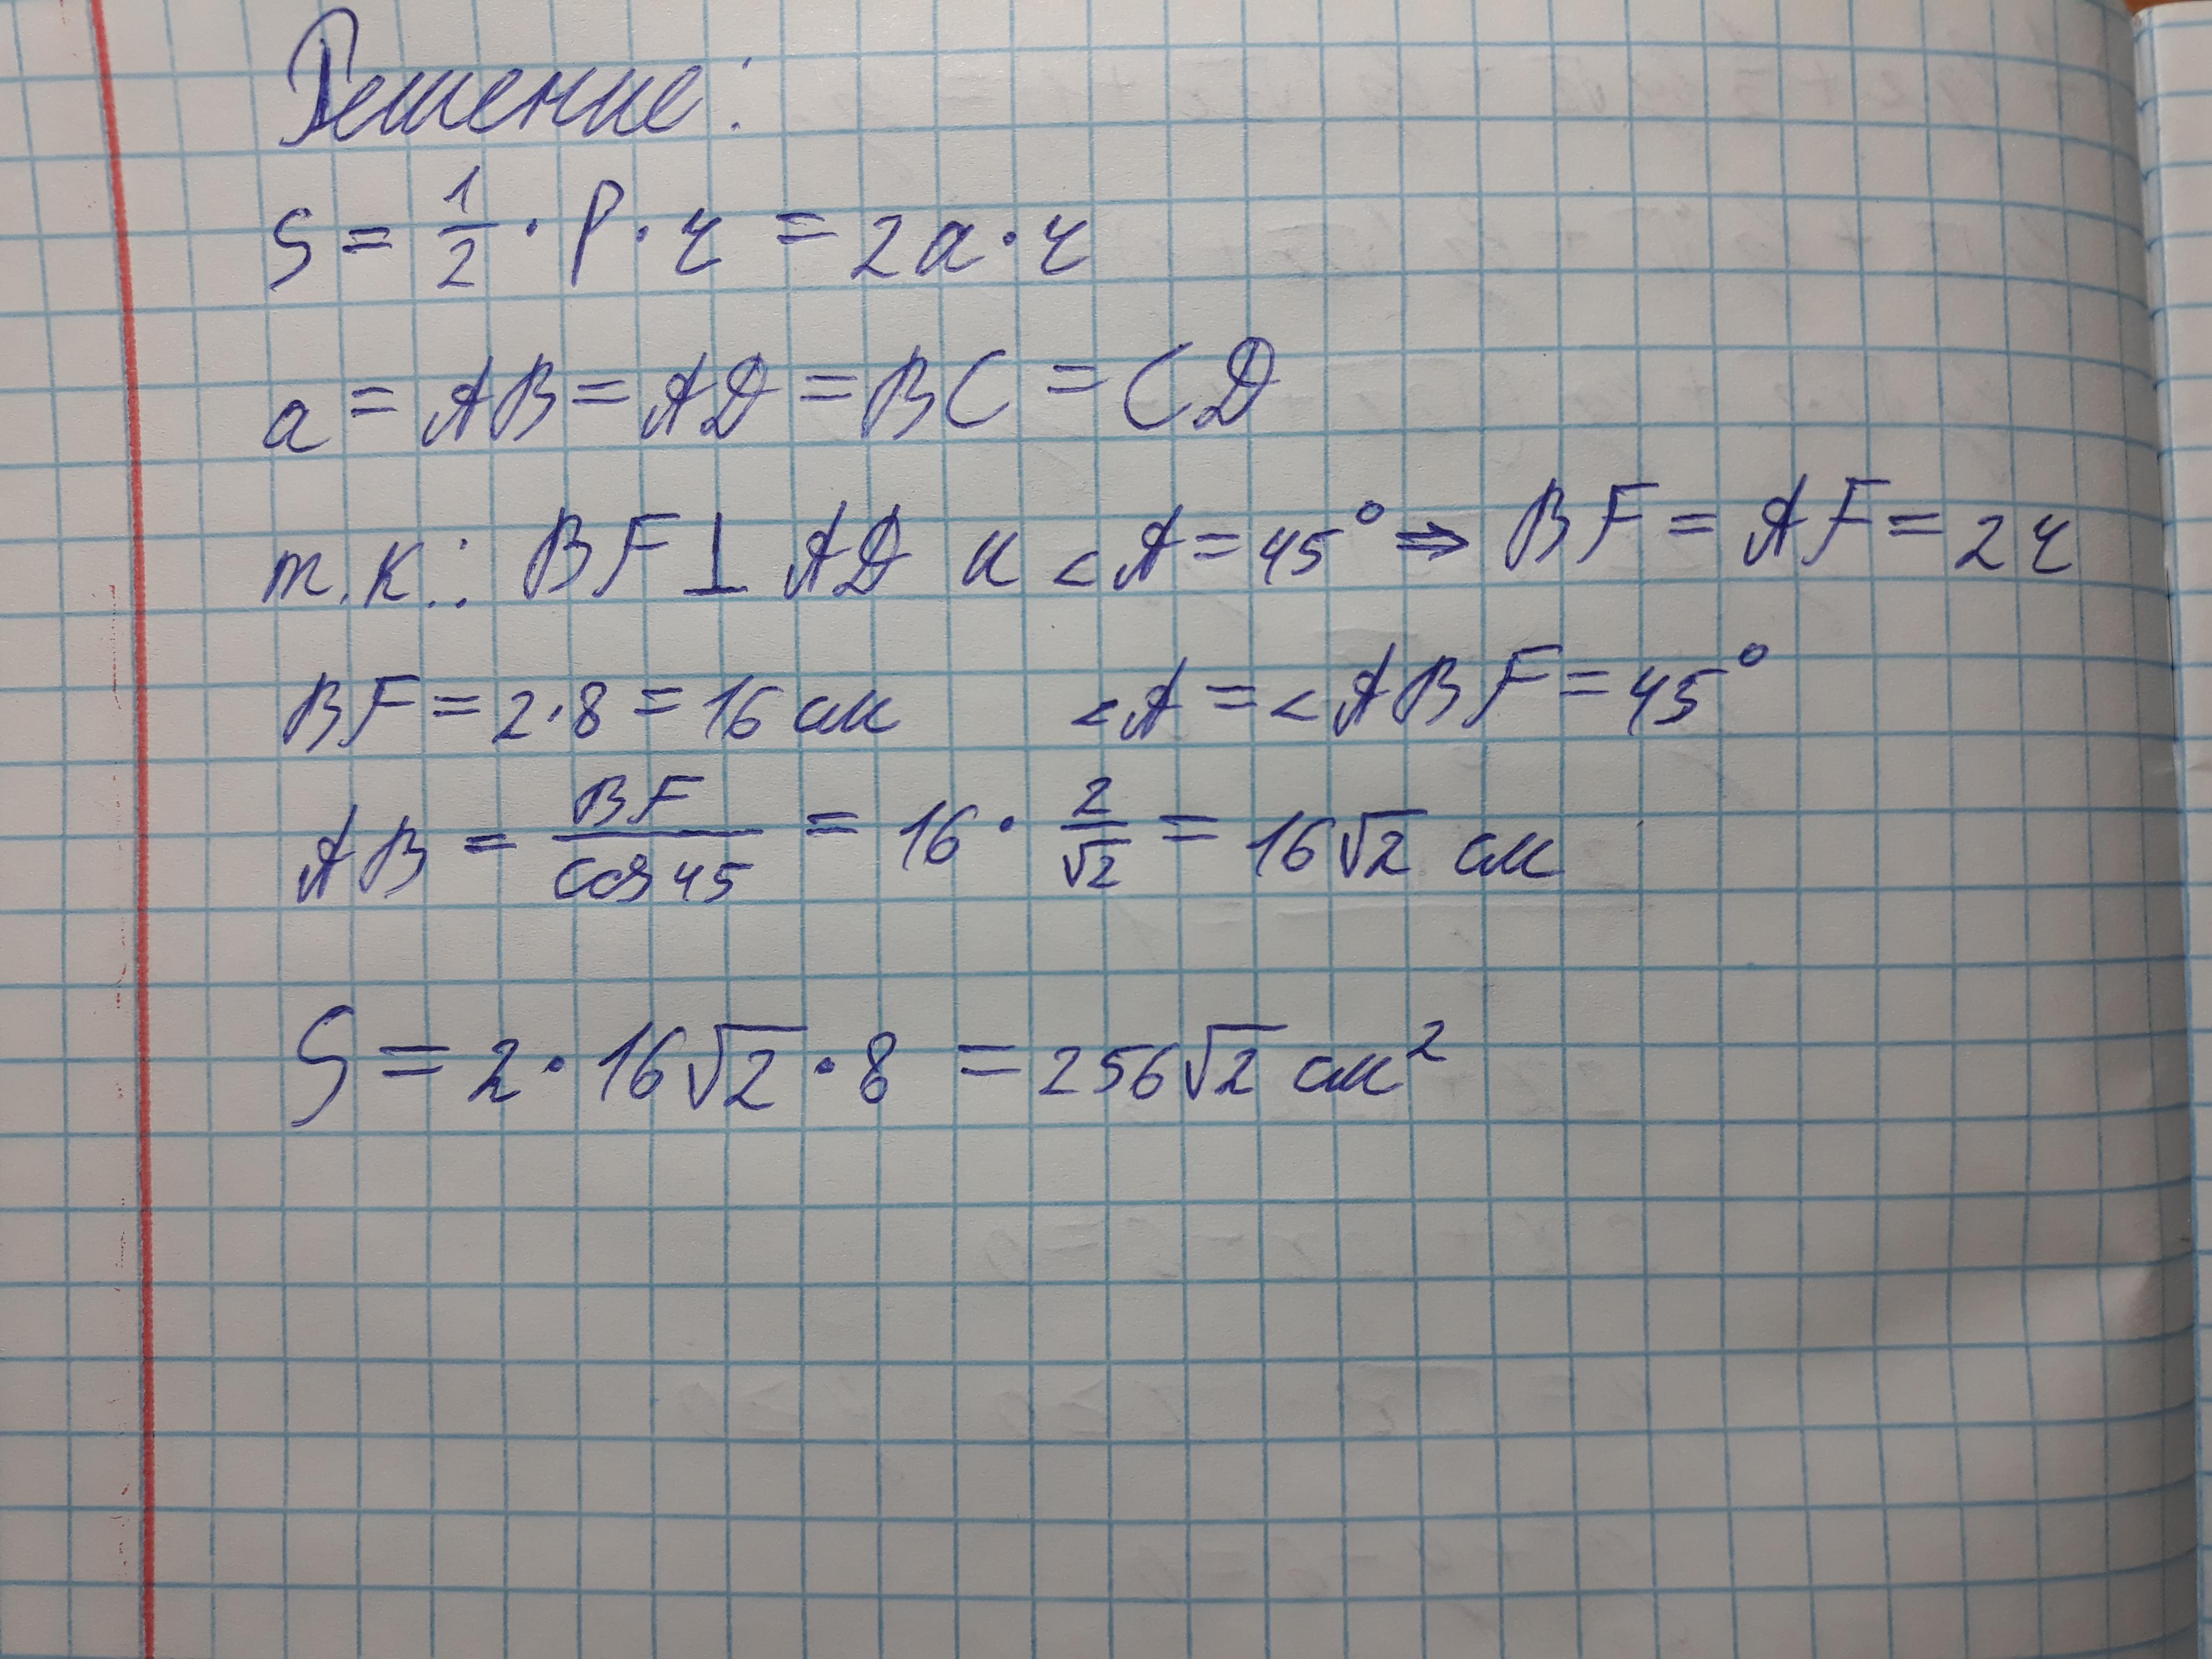 Решение:
S = 1/2 · P · r = 2a · r
a = AB = AD = BC = CD
т.к.: BF ⊥ AD и <A = 45° ⇒ BF = AF = 2r
BF = 2·8 = 16 см <A = <ABF = 45°
AB = BF/cos 45 = 16 · 2/√2 = 16√2 см
S = 2 · 16√2 · 8 = 256√2 см²